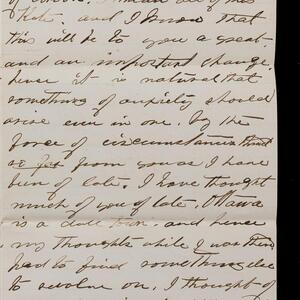 of London. I mean all of this
Kate. and I know that
this will be to you a great
and an important change.
hence it is natural that
something of anxiety should
arise even in one. by the
force of circumstances
so far from you as I have
been of late. I have thought
much of you of late, Ottawa
is a dull town. and hence
my thoughts while I was there
had to find something else
to revolve on. I thought of